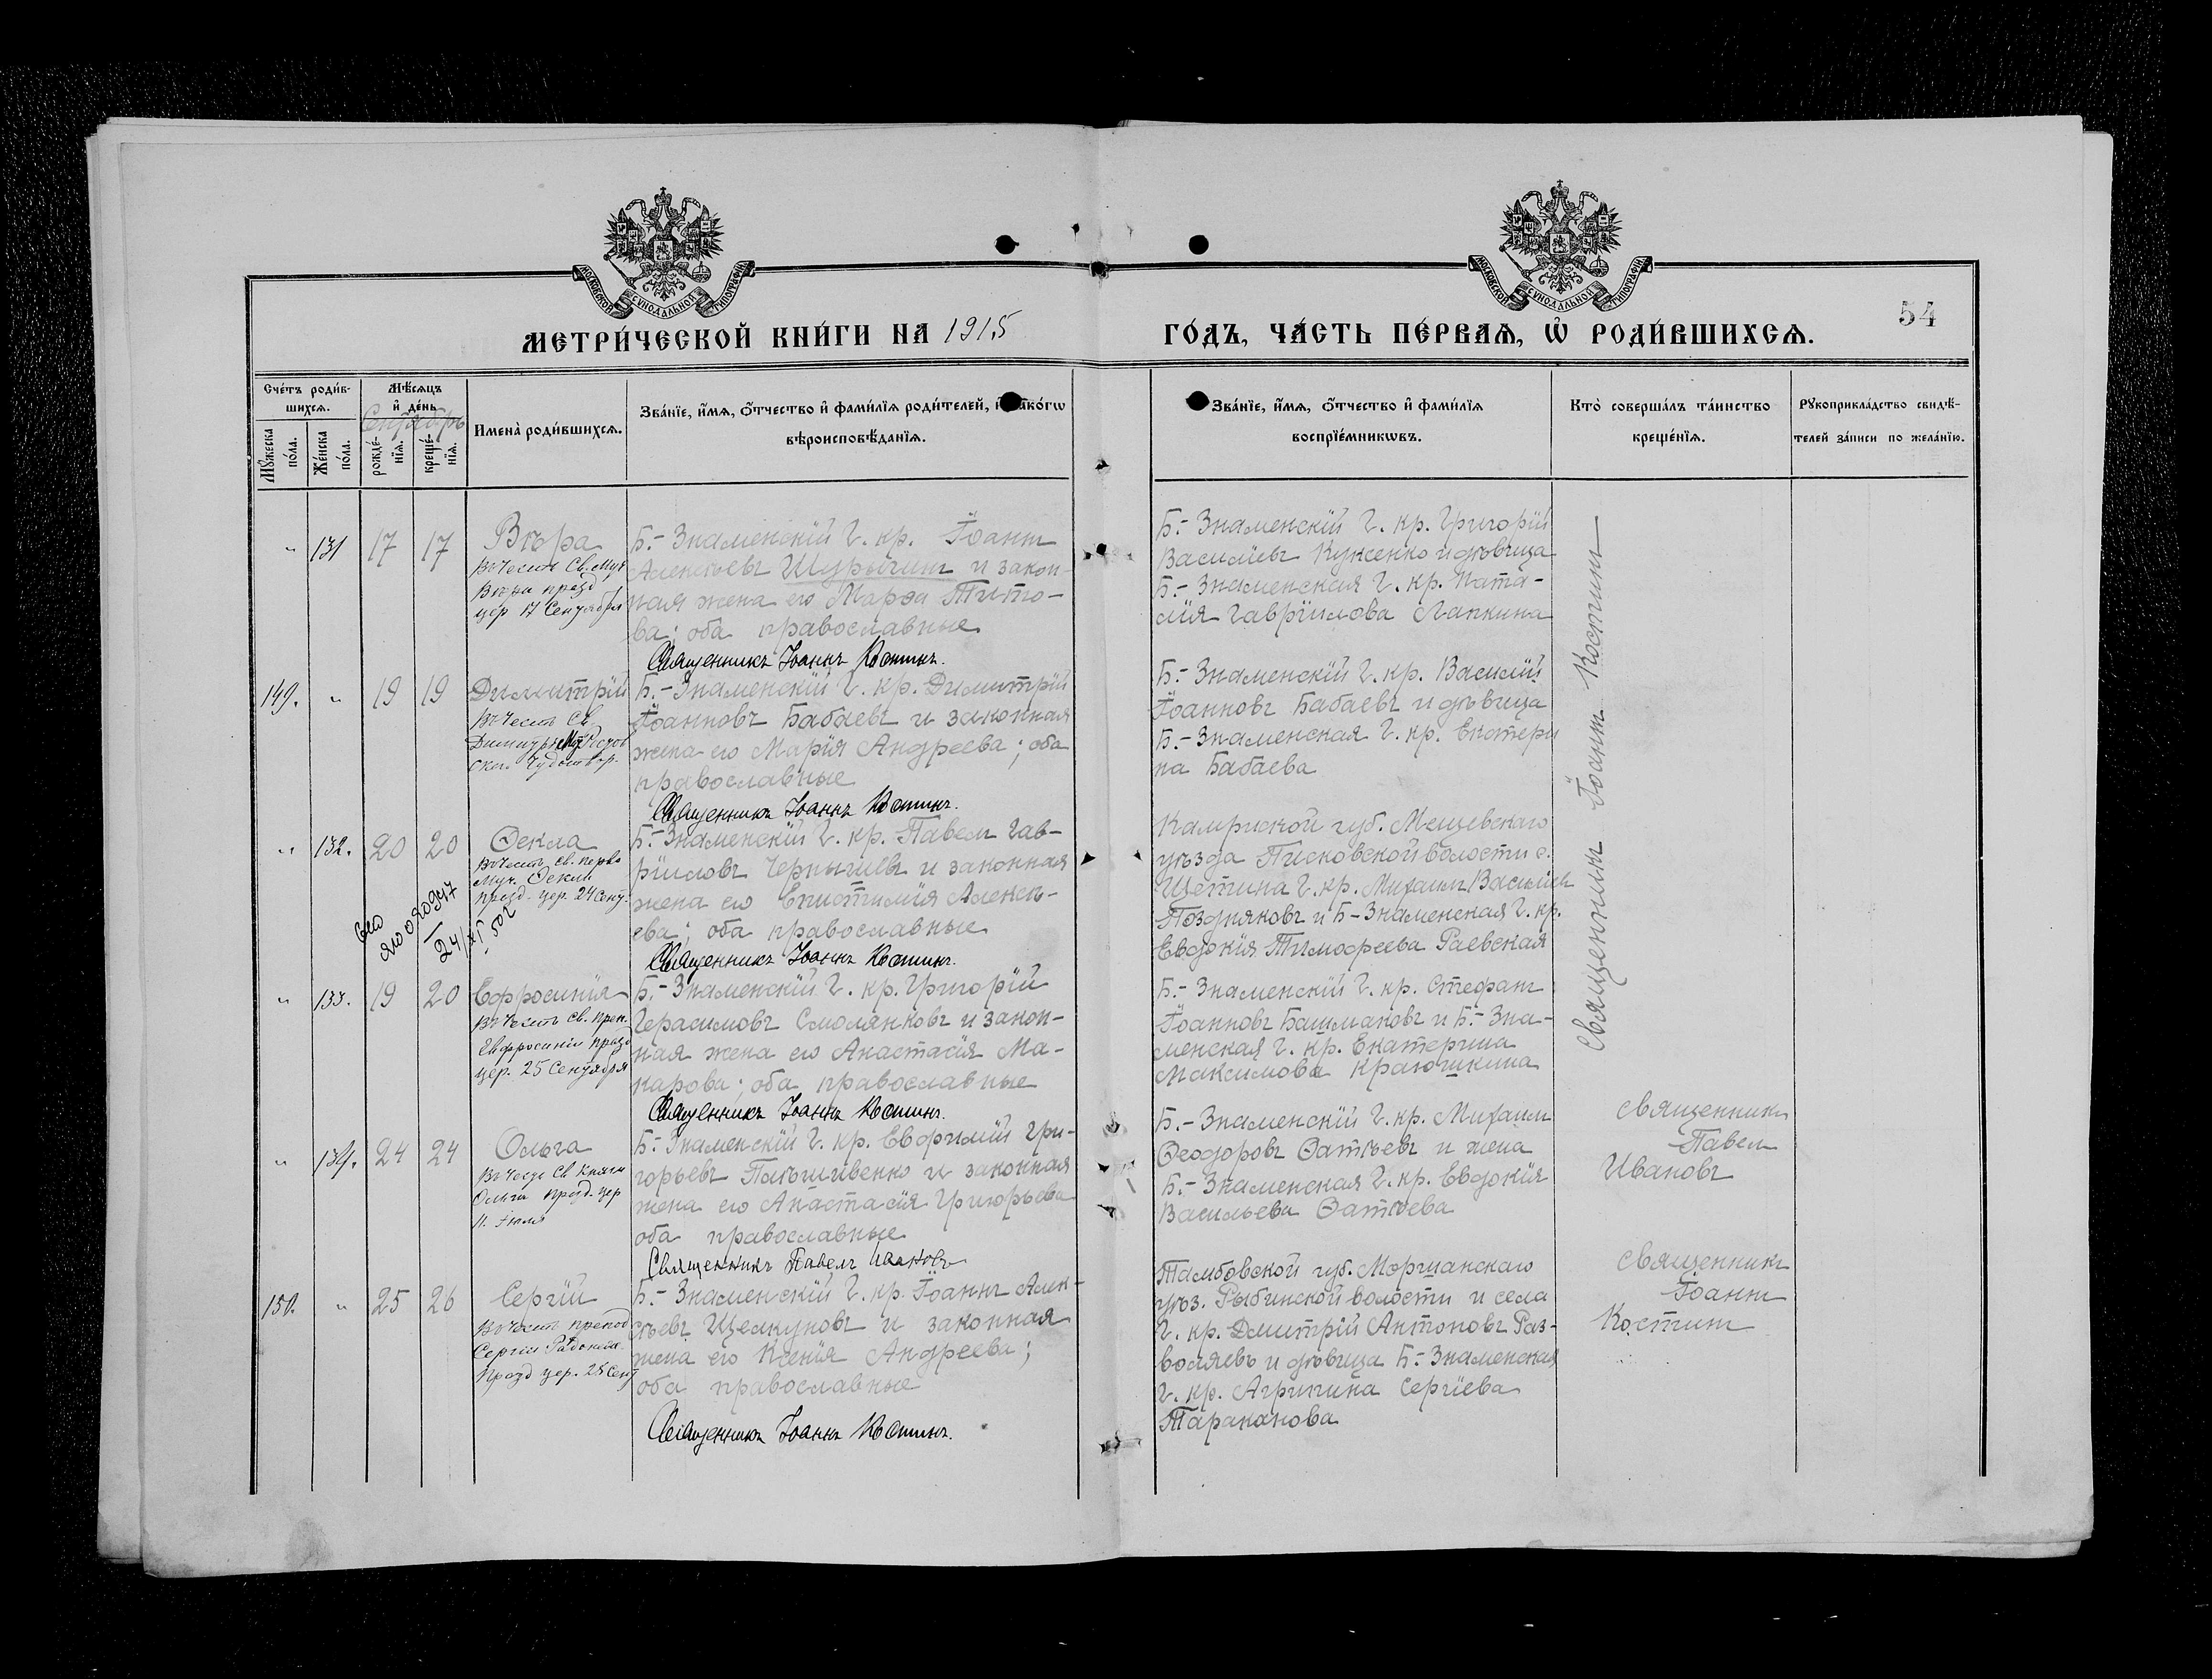 МОСКОВСКОЙ СѴНОДАЛЬНОЙ ТИПОГРАФІИ
МОСКОВСКОЙ СѴНОДАЛЬНОЙ ТИПОГРАФІИ
54
МЕТРИ́ЧЕСКОЙ КНИ́ГИ НА 1915 ГО́ДЪ, ЧА́СТЬ ПЕ́РВАѦ, Ѡ҆ РОДИ́ВШИХСѦ.
Сче́тъ роди́в-
шихсѧ.
Мꙋ́жеска по́ла.
Же́нска по́ла.
Мѣ́сѧцъ
и҆ де́нь
Сентябрь
рожде́-
нїѧ.
креще́-
нїѧ.
Имена̀ роди́вшихсѧ.
Зва́нїе, и҆́мѧ, ѻ҆́тчество и҆ фами́лїѧ роди́телей, и҆ како́гѡ
вѣроисповѣ́данїѧ.
Зва́нїе, и҆́мѧ, ѻ҆́тчество и҆ фами́лїѧ
воспрїе́мникѡвъ.
Кто̀ соверша́лъ та́инство
креще́нїѧ.
Рꙋкоприкла́дство свидѣ́-
телей за́писи по жела́нїю.
" 131 17 17
Вѣра
Въ честь Св. Муч
Вѣры празд
цер 17 Сентября
Б.-Знаменскій Г. кр. Іоаннъ
Алексѣевъ Шурыгинъ и закон-
ная жена его Марѳа Тито-
ва; оба православные
Священникъ Іоаннъ Костинъ.
Б.- Знаменскій Г. кр. Григорій
Василіевъ Куксенко и дѣвица
Б.- Знаменская Г. кр. Ната-
лія Гавріилова Лапкина
149. " 19 19
Димитрій
Въ честь Св.
Димитрія Мит Ростов
ского Чудотвор.
Б.-Знаменскій Г. кр. Димитрій
Іоанновъ Бабаевъ и законная
жена его Марія Андреева; оба
православные
Священникъ Іоаннъ Костинъ.
Б.- Знаменскій Г. кр. Василій
Іоанновъ Бабаевъ и дѣвица
Б.- Знаменская Г. кр. Екатери
на Бабаева
" 132. 20 20
Ѳекла
Въ честь св. перво
муч. Ѳеклы
празд. цер. 24 Сент.
24/XI
Б.-Знаменскій Г. кр. Павелъ Гав-
ріиловъ Чернышевъ и законная
жена его Епистимія Алексѣ-
ева; оба православные
Священникъ Іоаннъ Костинъ.
губ. Мещевскаго
уѣзда волости с.
Щетина Г. кр. Михаилъ Василіев
Поздняковъ и Б-Знаменская Г. кр.
Евдокія Тимофеева Раевская
" 133. 19 20
Ефросинія
Въ честь Св. Преп.
Евфросиніи празд
цер. 25 Сентября
Б.- Знаменскій Г. кр. Григорій
Герасимовъ Смолянковъ и закон-
ная жена его Анастасія Ма-
карова; оба православные
Священникъ Іоаннъ Костинъ.
Б.- Знаменскій Г. кр. Стефанъ
Іоанновъ Башмаковъ и Б.- Зна-
менская Г. кр. Екатерина
Максимова Краюшкина
Священникъ Іоаннъ Костинъ
" 134. 24 24
Ольга
Въ честь Св Княги
Ольги празд. цер
11. Іюля
Б.- Знаменскій Г. кр. Евфимій Гри-
горьевъ и законная
жена его Анастасія Григорьева
оба православные
Священникъ Павелъ Ивановъ
Б.- Знаменскій Г. кр. Михаилъ
Ѳеодоровъ Ѳатѣевъ и жена
Б.- Знаменская Г. кр. Евдокія
Васильева Ѳатѣева
священникъ
Павелъ
Ивановъ
150. " 25 26
Сергій
Въ честь препод
Сергія Радонеж.
празд цер. 25 Сент
Б.- Знаменскій Г. кр. Іоаннъ Алек-
сѣевъ Щелкуновъ и законная
жена его Ксенія Андреева;
оба православные
Священникъ Іоаннъ Костинъ.
Тамбовской губ. Моршанскаго
уѣз. Рыбинской волости и села
Г. кр. Дмитрій Антоновъ Раз-
воляевъ и дѣвица Б.- Знаменская
Г. кр. Агрипина Сергіева
Тараканова
священникъ
Іоаннъ
Костинъ